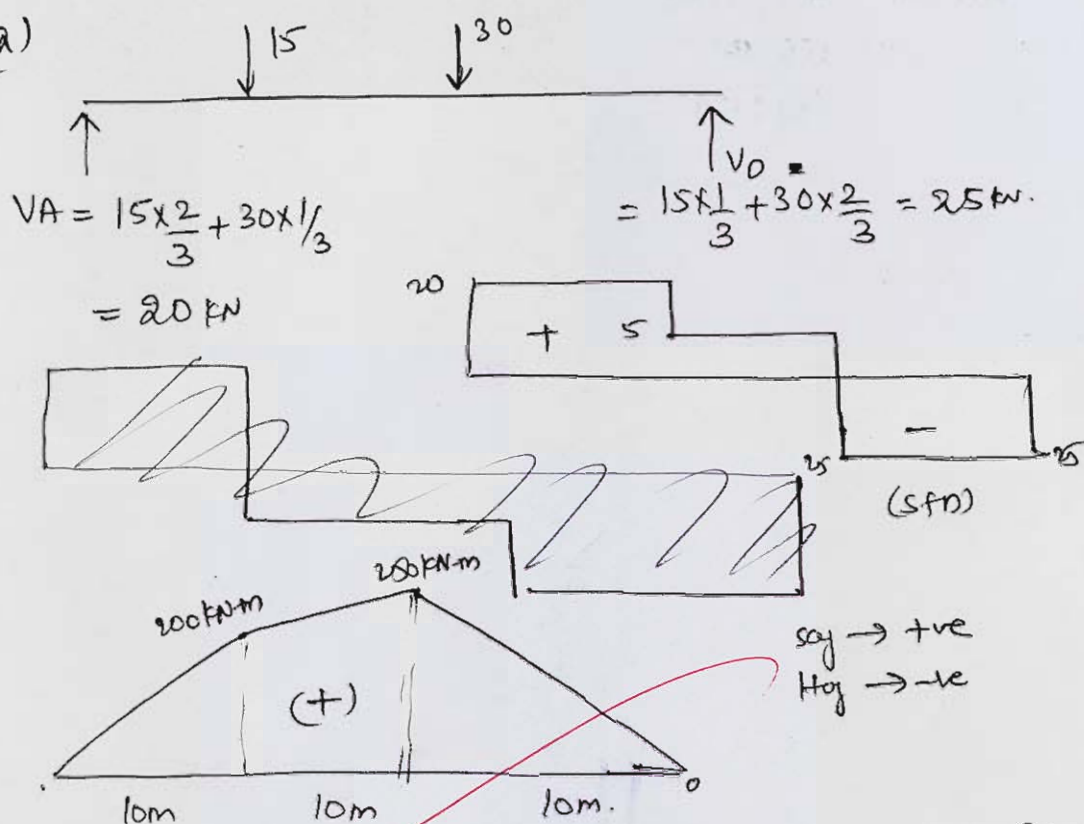 a)
15
30
VA = 15×2/3 + 30×1/3
= 20 KN
VD
= 15×1/3 + 30×2/3 = 25 KN.
20
+
5
-
25
25
(SFD)
200 KN-m
250 KN-m
(+)
sag → +ve
Hog → -ve
0
10m
10m
10m.